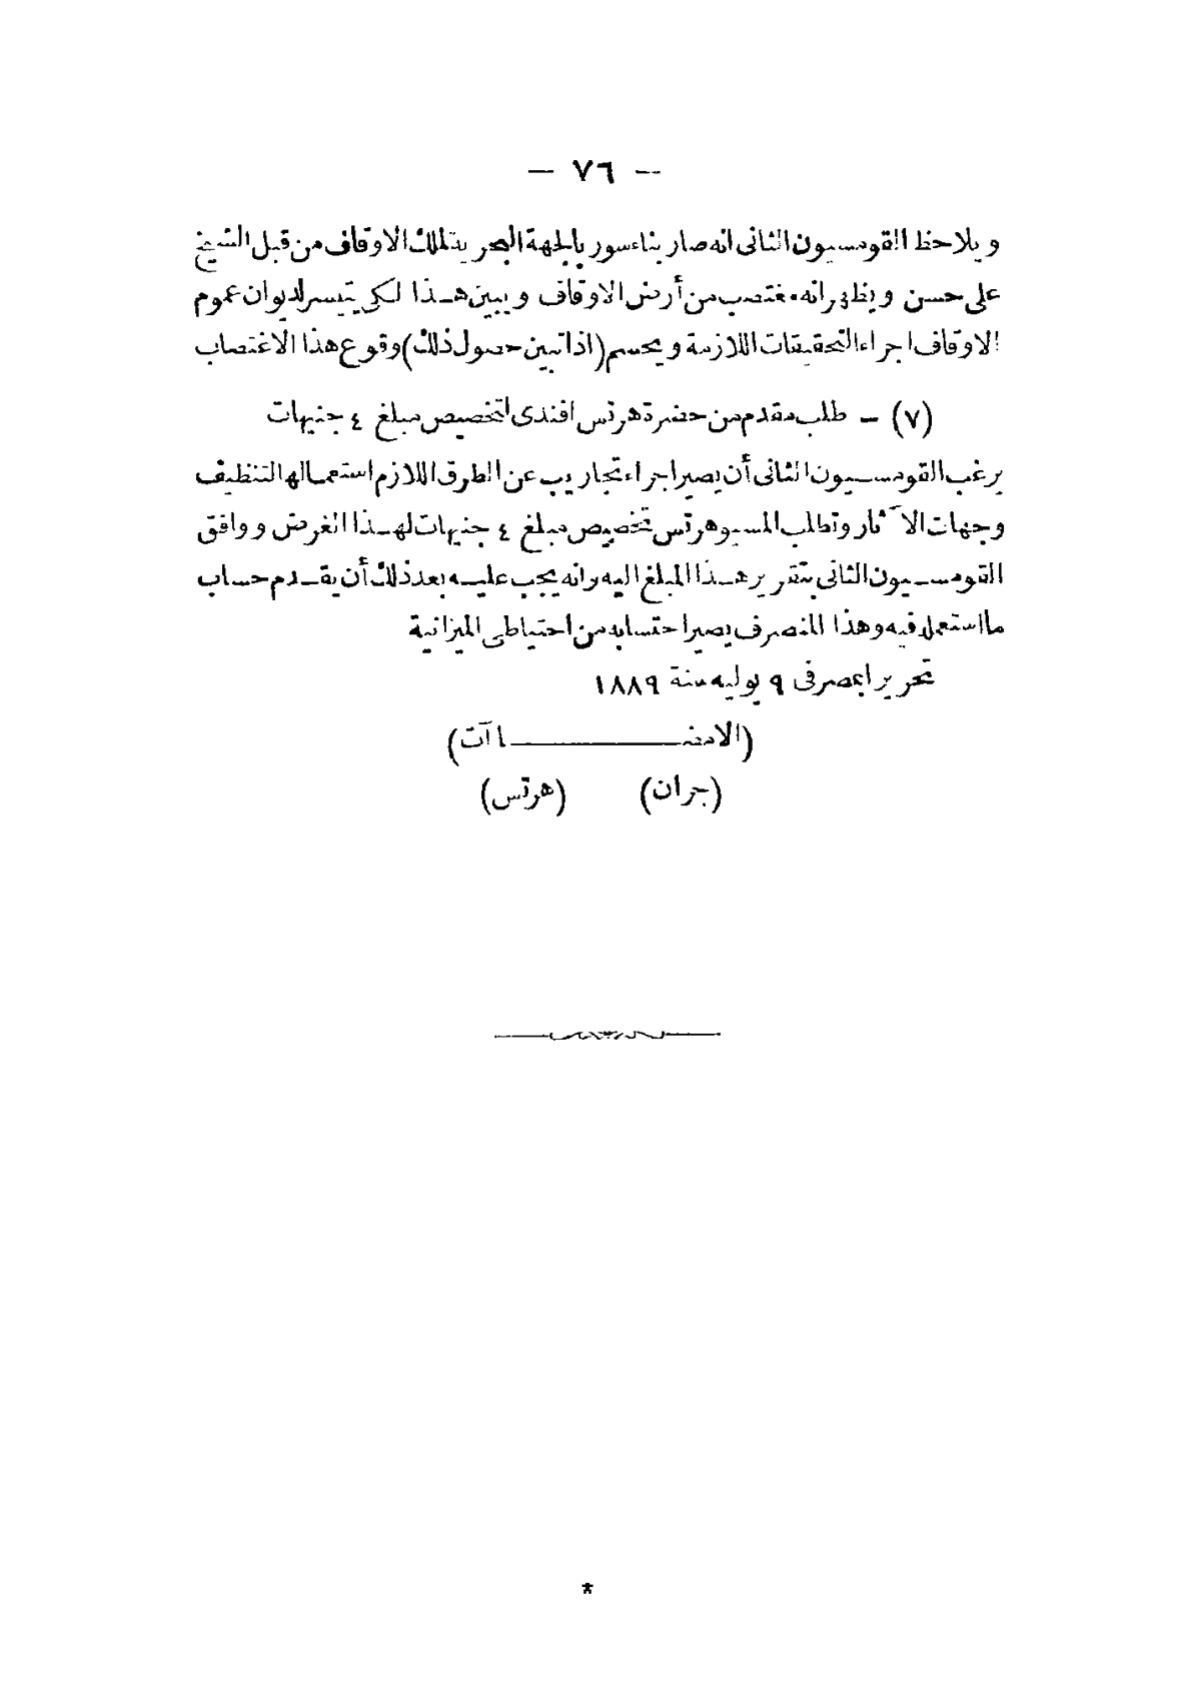 — ٧٦ —
ويلاحظ القومسيون الثانى انه صار بناء سور بالجهة البحرية لملك الاوقاف من قبل الشيخ
على حسن ويظهر انه مغتصب من أرض الاوقاف ويبين هذا لكى يتيسر لديوان عموم
الاوقاف اجراء التحقيقات اللازمة ويحسم (اذا تبين حصول ذلك) وقوع هذا الاغتصاب
(٧) — طلب مقدم من حضرة هرتس افندى لتخصيص مبلغ ٤ جنيهات
يرغب القومسيون الثانى أن يصير اجراء تجاريب عن الطرق اللازم استعمالها لتنظيف
وجهات الآثار وتطلب المسيو هرتس تخصيص مبلغ ٤ جنيهات لهذا الغرض ووافق
القومسيون الثانى بتقرير هذا المبلغ اليه وانه يجب عليه بعد ذلك أن يقدم حساب
ما استعمله فيه وهذا المنصرف يصير احتسابه من احتياطى الميزانية
تحريرا بمصر فى ٩ يوليه سنة ١٨٨٩
(الامضاآت)
(جران) (هرتس)
*